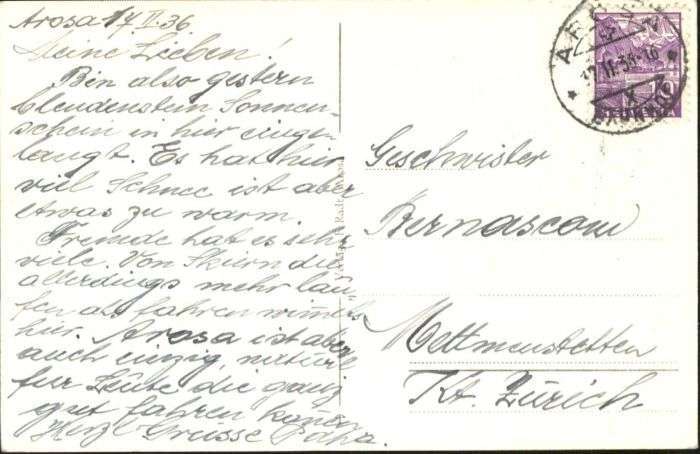 Arosa 17 II. 36
Meine Lieben!
Bin also gestern
blendenstem Sonnen-
schein in hier einge-
langt. Es hat hier
viel Schnee ist aber
etwas zu warm.
Fremde hat es sehr
viele. Von Skiern die
allerdings mehr lau-
fen als fahren wimmelts
hier. Arosa ist aber
auch einzig, natürl
für Leute die ganz
gut fahren können
Herzl Grüsse
Geschwister
Bernasconi
Mettmenstetten
Kt. Zürich
AROSA
17.II.36-16